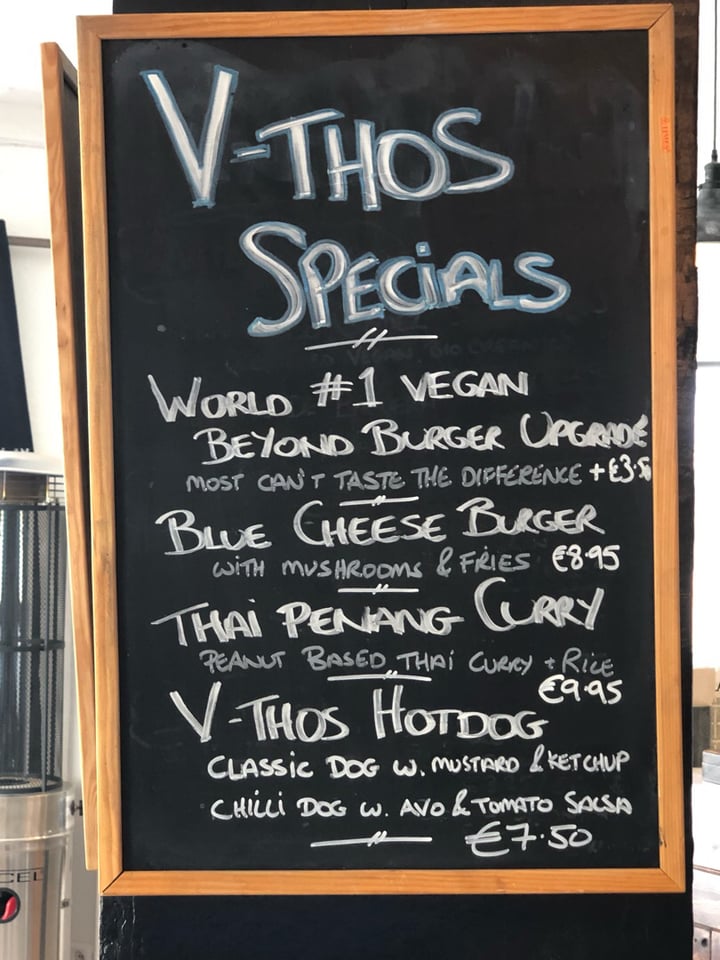 V-THOS
SPECiALS
WORLD #1 VEGAN
BEYOND BURGER UPGRADE
MOST CAN'T TASTE THE DIFFERENCE +€3.50
BLUE CHEESE BURGER
WITH MUSHROOMS & FRIES €8.95
THAi PENANG CURRY
PEANUT BASED THAi CURRY + RiCE
€9.95
V-THOS HOTDOG
CLASSiC DOG W. MUSTARD & KETCHUP
CHiLLi DOG W. AVO & TOMATO SALSA
€7.50
CEL